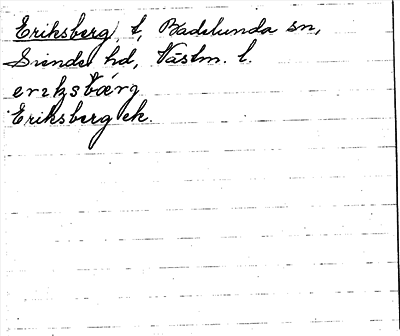 Eriksberg, t, Badelunda sn,
Siende hd, Västm. l.
Eriksberg ek.